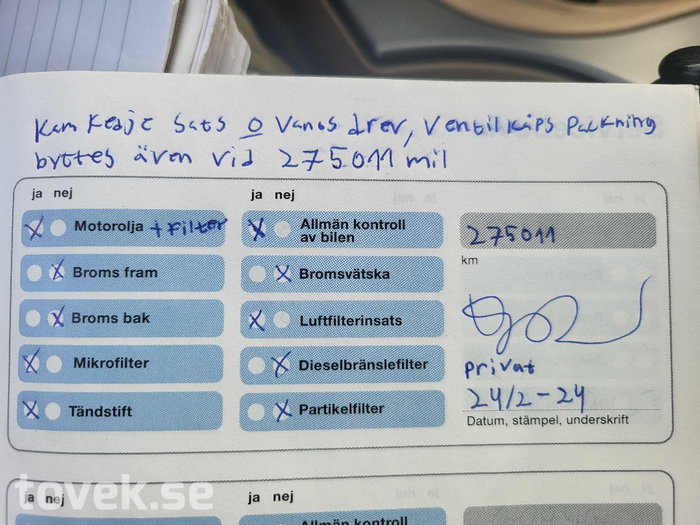 Kam Kedje Sats o Vanos drev, Ventilkåps Packning
byttes även vid 275011 mil
ja nej
ja nej
Motorolja + Filter
Allmän kontroll
av bilen
275011
km
Broms fram
Bromsvätska
Broms bak
Luftfilterinsats
Mikrofilter
Dieselbränslefilter
privat
Tändstift
Partikelfilter
24/2-24
Datum, stämpel, underskrift
tovek.se
ja nej
ja nej
Allmän kontroll